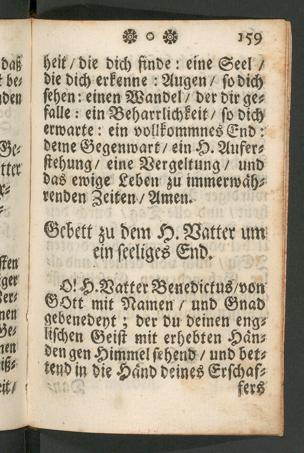 159
heit / die dich finde : eine Seel /
die dich erkenne : Augen / so dich
sehen : einen Wandel / der dir ge-
falle : ein Beharrlichkeit / so dich
erwarte : ein vollkommnes End :
deine Gegenwart / ein H. Aufer-
stehung / eine Vergeltung / und
das ewige Leben zu immerwäh-
renden Zeiten / Amen.
Gebett zu dem H. Vatter um
ein seeliges End.
O! H. Vatter Benedictus / von
GOtt mit Namen / und Gnad
gebenedeyt ; der du deinen eng-
lischen Geist mit erhebten Hän-
den gen Himmel sehend / und bet-
tend in die Händ deines Erschaf-
fers